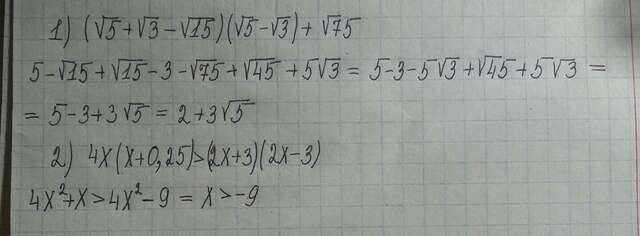 1) (√5+√3-√15)(√5-√3)+√75
5-√15+√15-3-√75+√45+5√3=5-3-5√3+√45+5√3=
=5-3+3√5=2+3√5
2) 4x(x+0,25)>(2x+3)(2x-3)
4x²+x>4x²-9=x>-9